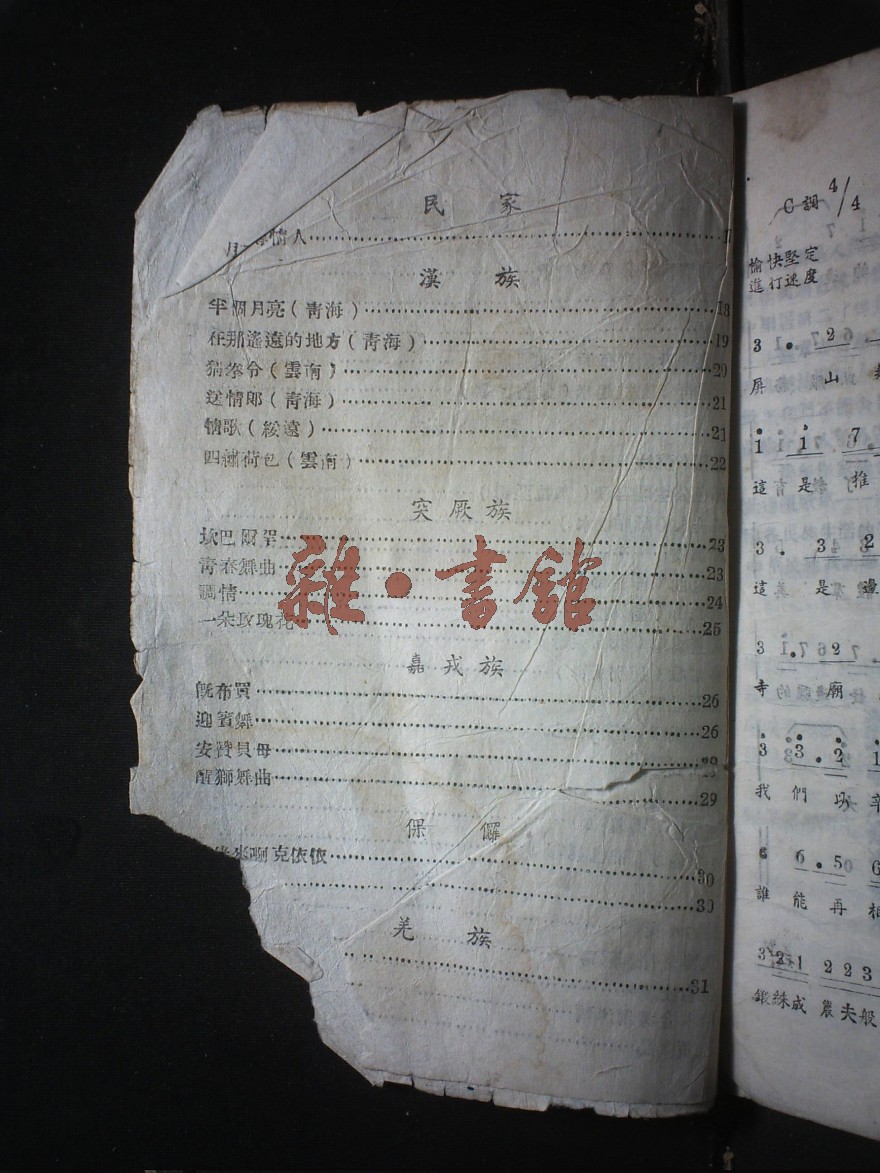 民家
情人
漢族
半個月亮(青海)18
在那遙遠的地方(青海)19
猜拳令(雲南)20
送情郎(青海)21
情歌(綏遠)21
四繡荷包(雲南)22
突厥族
坎巴爾罕23
青春舞曲23
調情24
一朵玫瑰花25
嘉戎族
布買26
迎賓舞26
安贊貝母
醒獅舞曲29
倮儸
啊克依依30
30
羌族
31
雜·書館
C調 4/4
愉快堅定
進行速度
3 1. 7 2 6
屏山
1 1 1 7
這是推
3. 3 2
這是邊
3 1. 6 2
寺廟
3 3. 2 1
我們
6 6. 5 6
誰能再相
3 2 1 2 2 3
鍛鍊成農夫般